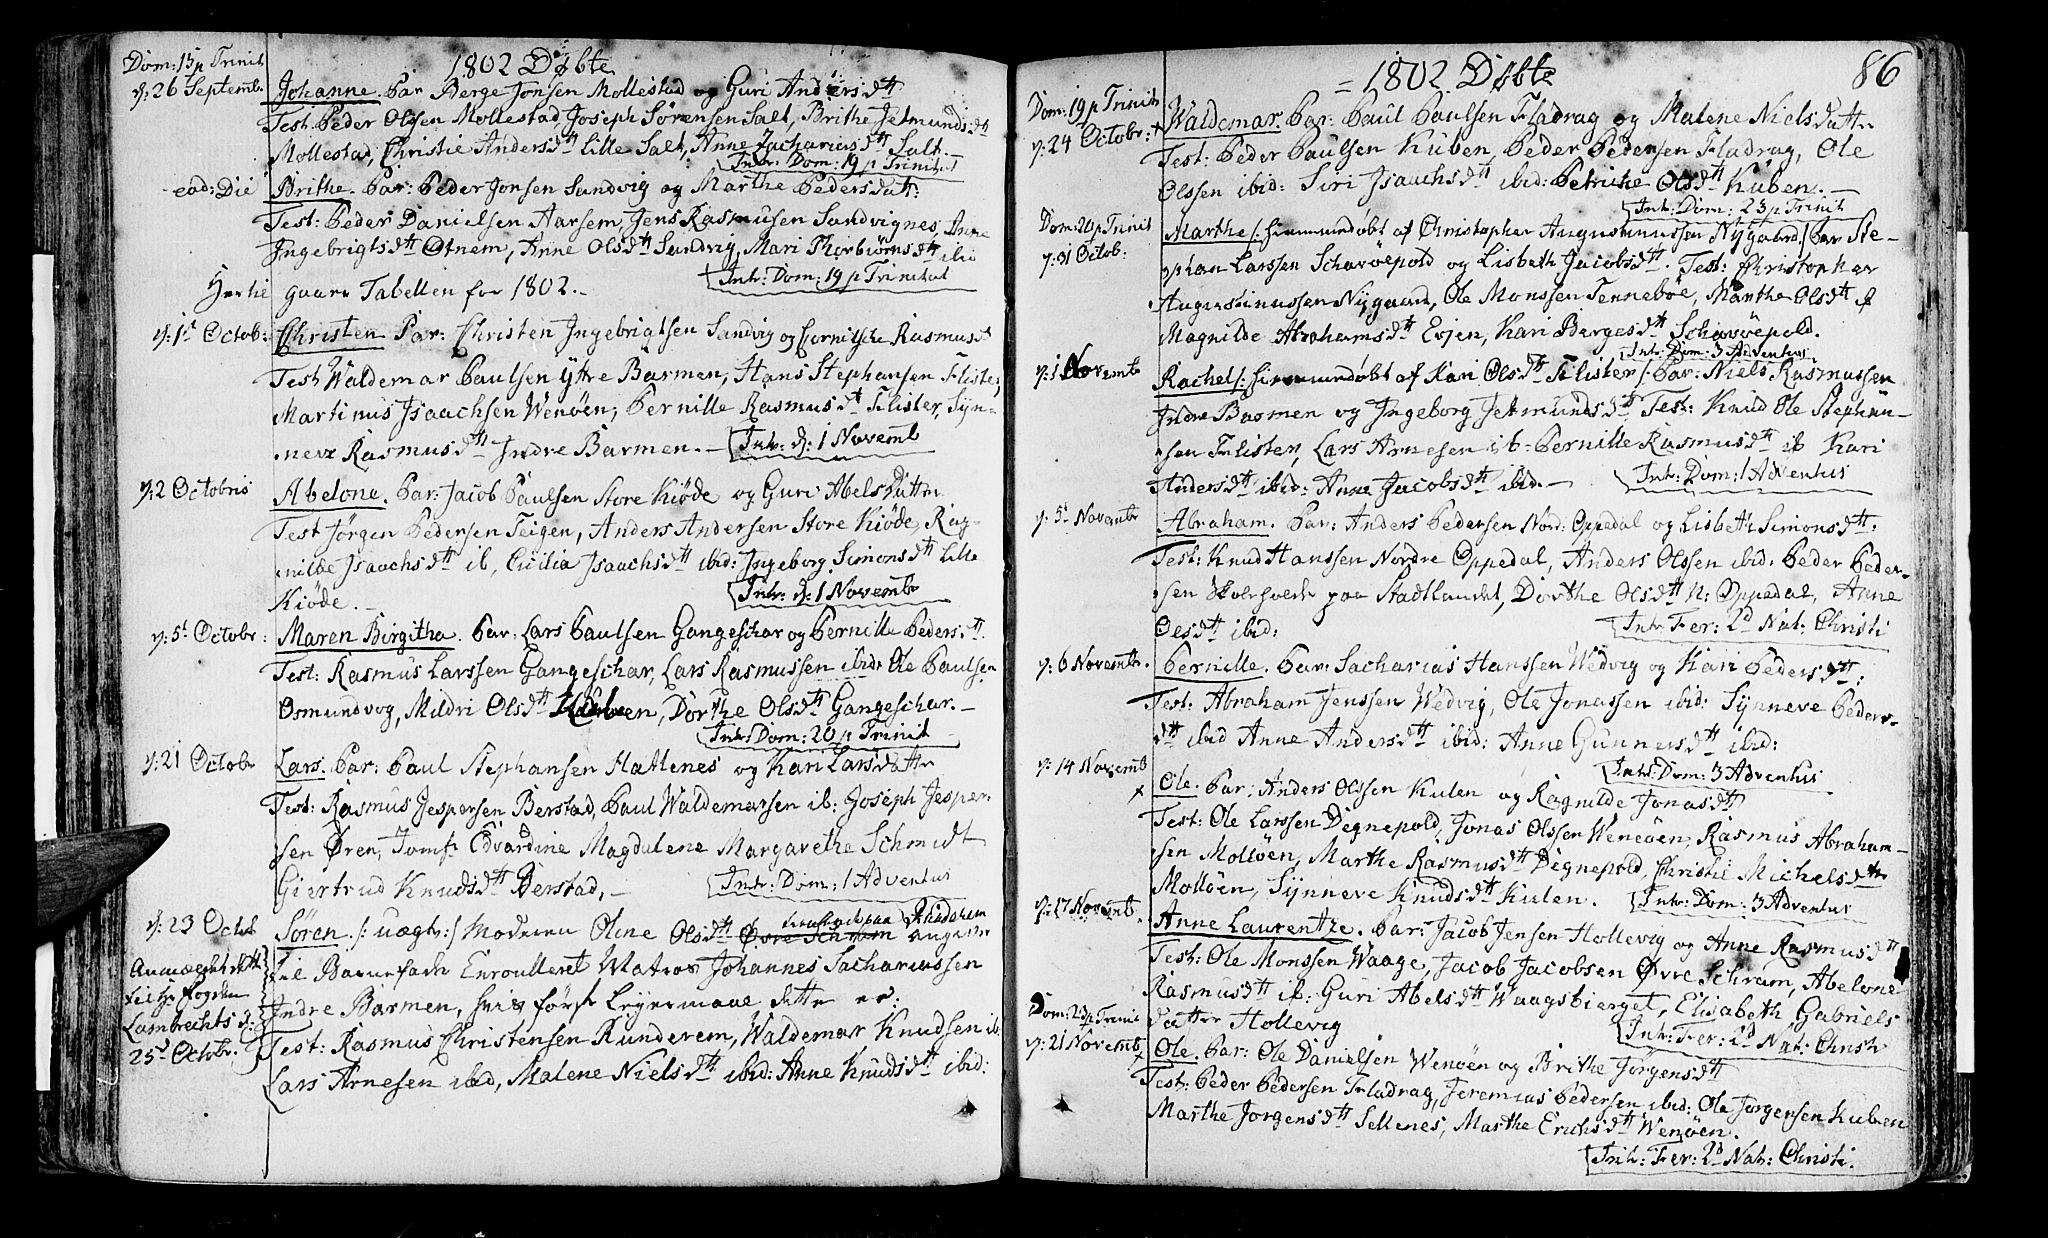 1802 Døbte
Dom: 15 p Trinit
d: 26 Septemb. Johanne. Par Berge Jonsen Mollestad og Guri Andersdtt
Test. Peder Olssen Mollestad, Joseph Sörensen Salt, Brithe Jetmundsdtt
Mollestad, Christie Andersdtt Lille Salt, Anne Zachariasdtt Salt.
Intr: Dom: 19 p Trinitat
ead: Die Brithe. Par: Peder Jonsen Sandvig og Marthe Pedersdatt:
Test: Peder Danielsen Aarsem, Jens Rasmusen Sandvignes, Anne
Ingebrigtsdtt Otnem, Anne Olsdtt Sandvig, Mari Thorbiörnsdtt ibid
Intr: Dom: 19 p Trinitat
Hertil gaaer Tabellen for 1802.
d: 1st Octob: Christen Par: Christen Ingebrigtsen Sandvig og Rasmusdt
Test Waldemar Paulsen Ÿttre Barmen, Hans Stephansen Flister,
Martinus Isaachsen Wenöen, Pernille Rasmusdt Flister, Syn-
neve Rasmusdtt Indre Barmen. Intr: d: 1 Novemb
d: 2 Octobris Abelone. Par: Jacob Paulsen Store Kiöde og Guri Abels Datter
Test Jörgen Pedersen Teigen, Anders Andersen Store Kiöde, Rag-
nilde Isaachsdtt ib, Cicilia Isaachsdtt ibid: Ingeborg Simonsdtt Lille
Kiöde. Intr: d: 1 Novembr
d: 5t Octobr: Maren Birgitha. Par: Lars Paulsen Gangeschar og Pernille Pedersdtt.
Test: Rasmus Larssen Gangeschar, Lars Rasmussen ibid: Ole Paulsen
Osmundvog, Mildri Olsdtt Dorthe Olsdtt Gangeschar.
Intr: Dom: 20 p Trinit
d: 21 Octobr Lars. Par: Paul Stephansen Hatlenes og Kari Larsdatter
Test: Rasmus Jespersen Berstad, Paul Waldemarsen ib: Joseph Jesper-
sen Ören, Jomfr Edvardine Magdalene Margarethe Schmidt
Giertrud Knudsdtt Berstad, Intr: Dom: 1 Adventus
d: 23 Octob Sören /: uægte :/ Moderen Oline Olsdtt Øvre Schram angiver
til Barnefader Enroulleret Matros Johannes Sachariassen
Indre Barmen, hvis först Leyermaal dette er.
Lambrechts d:
25d Octobr.
Test: Rasmus Christensen Runderem, Waldemar Knudsen ib
Lars Arnesen ibid, Malene Nielsdtt ibid: Anne Knudsdtt ibid:
1802 Døbte 86
Dom: 19 p Trinit
d: 24 Octobr: Waldemar. Par: Paul Paulsen Fladrag og Malene Nielsdatter
Test: Peder Paulsen Kuben, Peder Pedersen Fladrag, Ole
Olssen ibid: Siri Isaachsdtt ibid: Petrike Olsdtt Kuben.
Intr: Dom: 23 p Trinit
Dom: 20 p Trinit
d: 31 Octob: Marthe /: hiemmedöbt af Christopher Augustinussen Nygaard :/ Par Ste-
phan Larssen Scharöepold og Lisbeth Jacobsdtt. Test: Christopher
Augustinussen Nygaard, Ole Monssen Tenneböe, Marthe Olsdtt
Magnilde Abrahamsdtt Evjen, Kari Bergesdtt Scharöepold.
Intr: Dom: 3 Adventus
d: 1 Novembr Rachel /: hiemmedöbt af Kari Olsdtt Flister :/ Par: Niels Rasmussen
Indre Barmen og Ingeborg Jetmundsdtt Test: Knud Ole Stephan-
sen Flister, Lars Arnesen ib: Pernille Rasmusdtt ib Kari
Andersdtt ibid: Anne Jacobsdtt ibid. Intr: Dom: 1 Adventus
d: 5t Novembr Abraham. Par: Anders Pedersen Nord: Oppedal og Lisbeth Simonsdtt:
Test: Knud Hanssen Nordre Oppedal, Anders Olssen ibid: Peder Peder-
sen Skoleholder paa Stadtlandet, Dorthe Olsdtt N: Oppedal, Anne
Olsdtt ibid: Intr: Fer: 2d Nat: Christi
d: 6 Novembr. Pernille. Par: Sacharias Hanssen Wedvig og Kari Pedersdtt:
Test: Abraham Jenssen Wedvig, Ole Jonassen ibid: Synneve Peders-
dtt ibid Anne Andersdtt ibid: Anne Gunnersdtt ibid:
Intr: Dom: 3 Adventus
d: 14 Novemb Ole. Par: Anders Olssen Kulen og Ragnilde Jonasdtt
Test: Ole Larssen Degnepold, Jonas Olssen Wenöen, Rasmus Abraham-
sen Mollöen, Marthe Rasmusdtt Degnepold, Christie Michelsdtr
Mollöen, Synneve Knudsdtt Kulen. Intr: Dom: 3 Adventus
d: 17 Novemb. Anne Laurentze. Par: Jacob Jensen Hollevig og Anne Rasmusdtt
Test: Ole Monssen Waage, Jacob Jacobsen Øvre Schram, Abelone
Rasmusdtt ib: Guri Abelsdtt Waagsbierget, Elisabeth Gabriels
datter Hollevig Intr: Fer: 2d Nat: Christi
Dom: 23 p Trinit
d: 21 Novemb Ole. Par: Ole Danielsen Wenöen og Brithe Jörgensdtt
Test: Peder Pedersen Fladrag, Jeremias Pedersen ibid: Ole Jörgensen Kuben
Marthe Jörgensdtt Sellenes, Marthe Erichsdtt Wenöen.
Intr: Fer: 2d Nat: Christi.